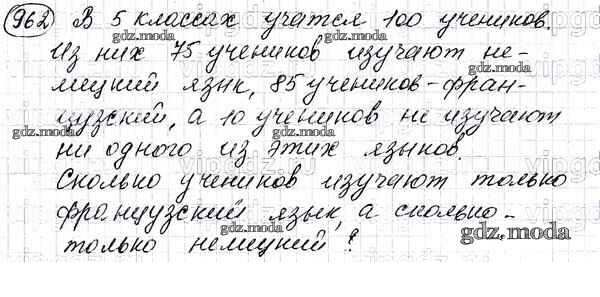 962 В 5 классах учатся 100 учеников.
Из них 75 учеников изучают не-
мецкий язык, 85 учеников - фран-
цузский, а 10 учеников не изучают
ни одного из этих языков.
Сколько учеников изучают только
французский язык, а сколько -
только немецкий?
gdz.moda
gdz.moda
gdz.moda
gdz.moda
gdz.moda
gdz.moda